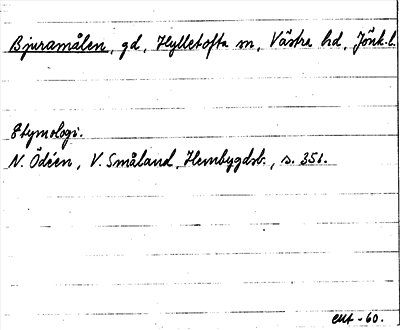 Bjuramålen, gd, Hylletofta sn, Västra hd, Jönk.l.
Etymologi.
N. Ödéen, V. Småland, Hembygdsb., s. 351.
EHt -60.